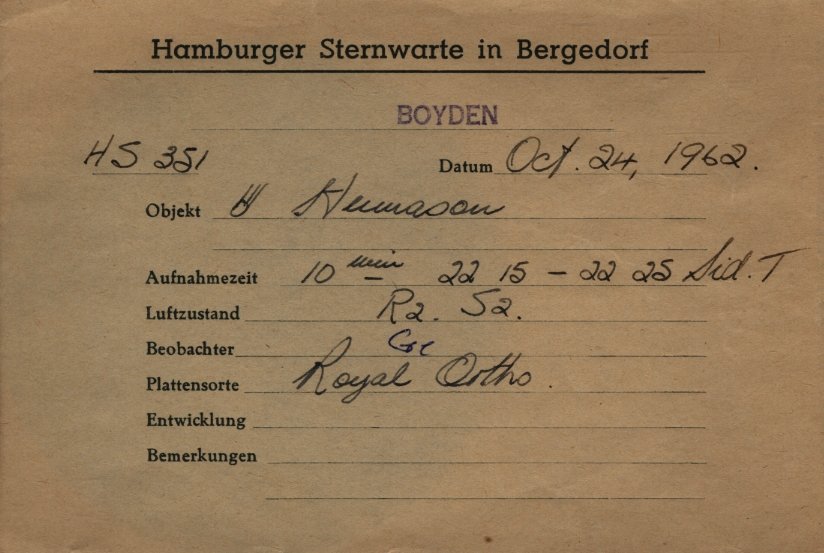 Hamburger Sternwarte in Bergedorf
BOYDEN
HS 351 Datum Oct. 24, 1962.
Objekt Humason
Aufnahmezeit 10 min 22 15 – 22 25 Sid. T
Luftzustand R2. S2.
Beobachter Gr
Plattensorte Royal Ortho.
Entwicklung
Bemerkungen